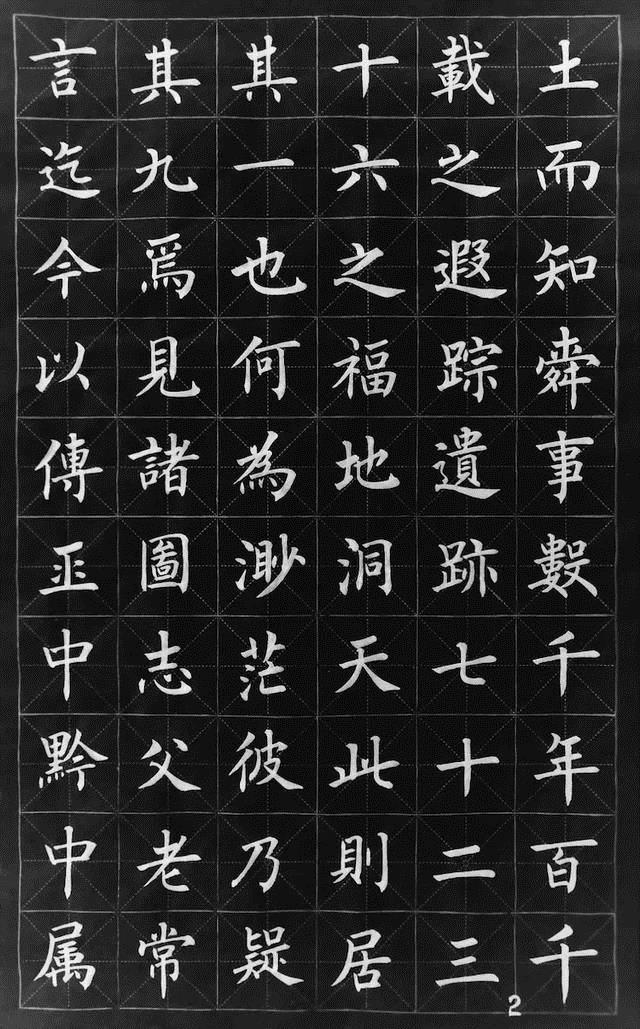 土而知舜事數千年百千
載之遐踪遺跡七十二三
十六之福地洞天此則居
其一也何為渺茫彼乃疑
其九焉見諸圖志父老常
言迄今以傳中黔中属
2